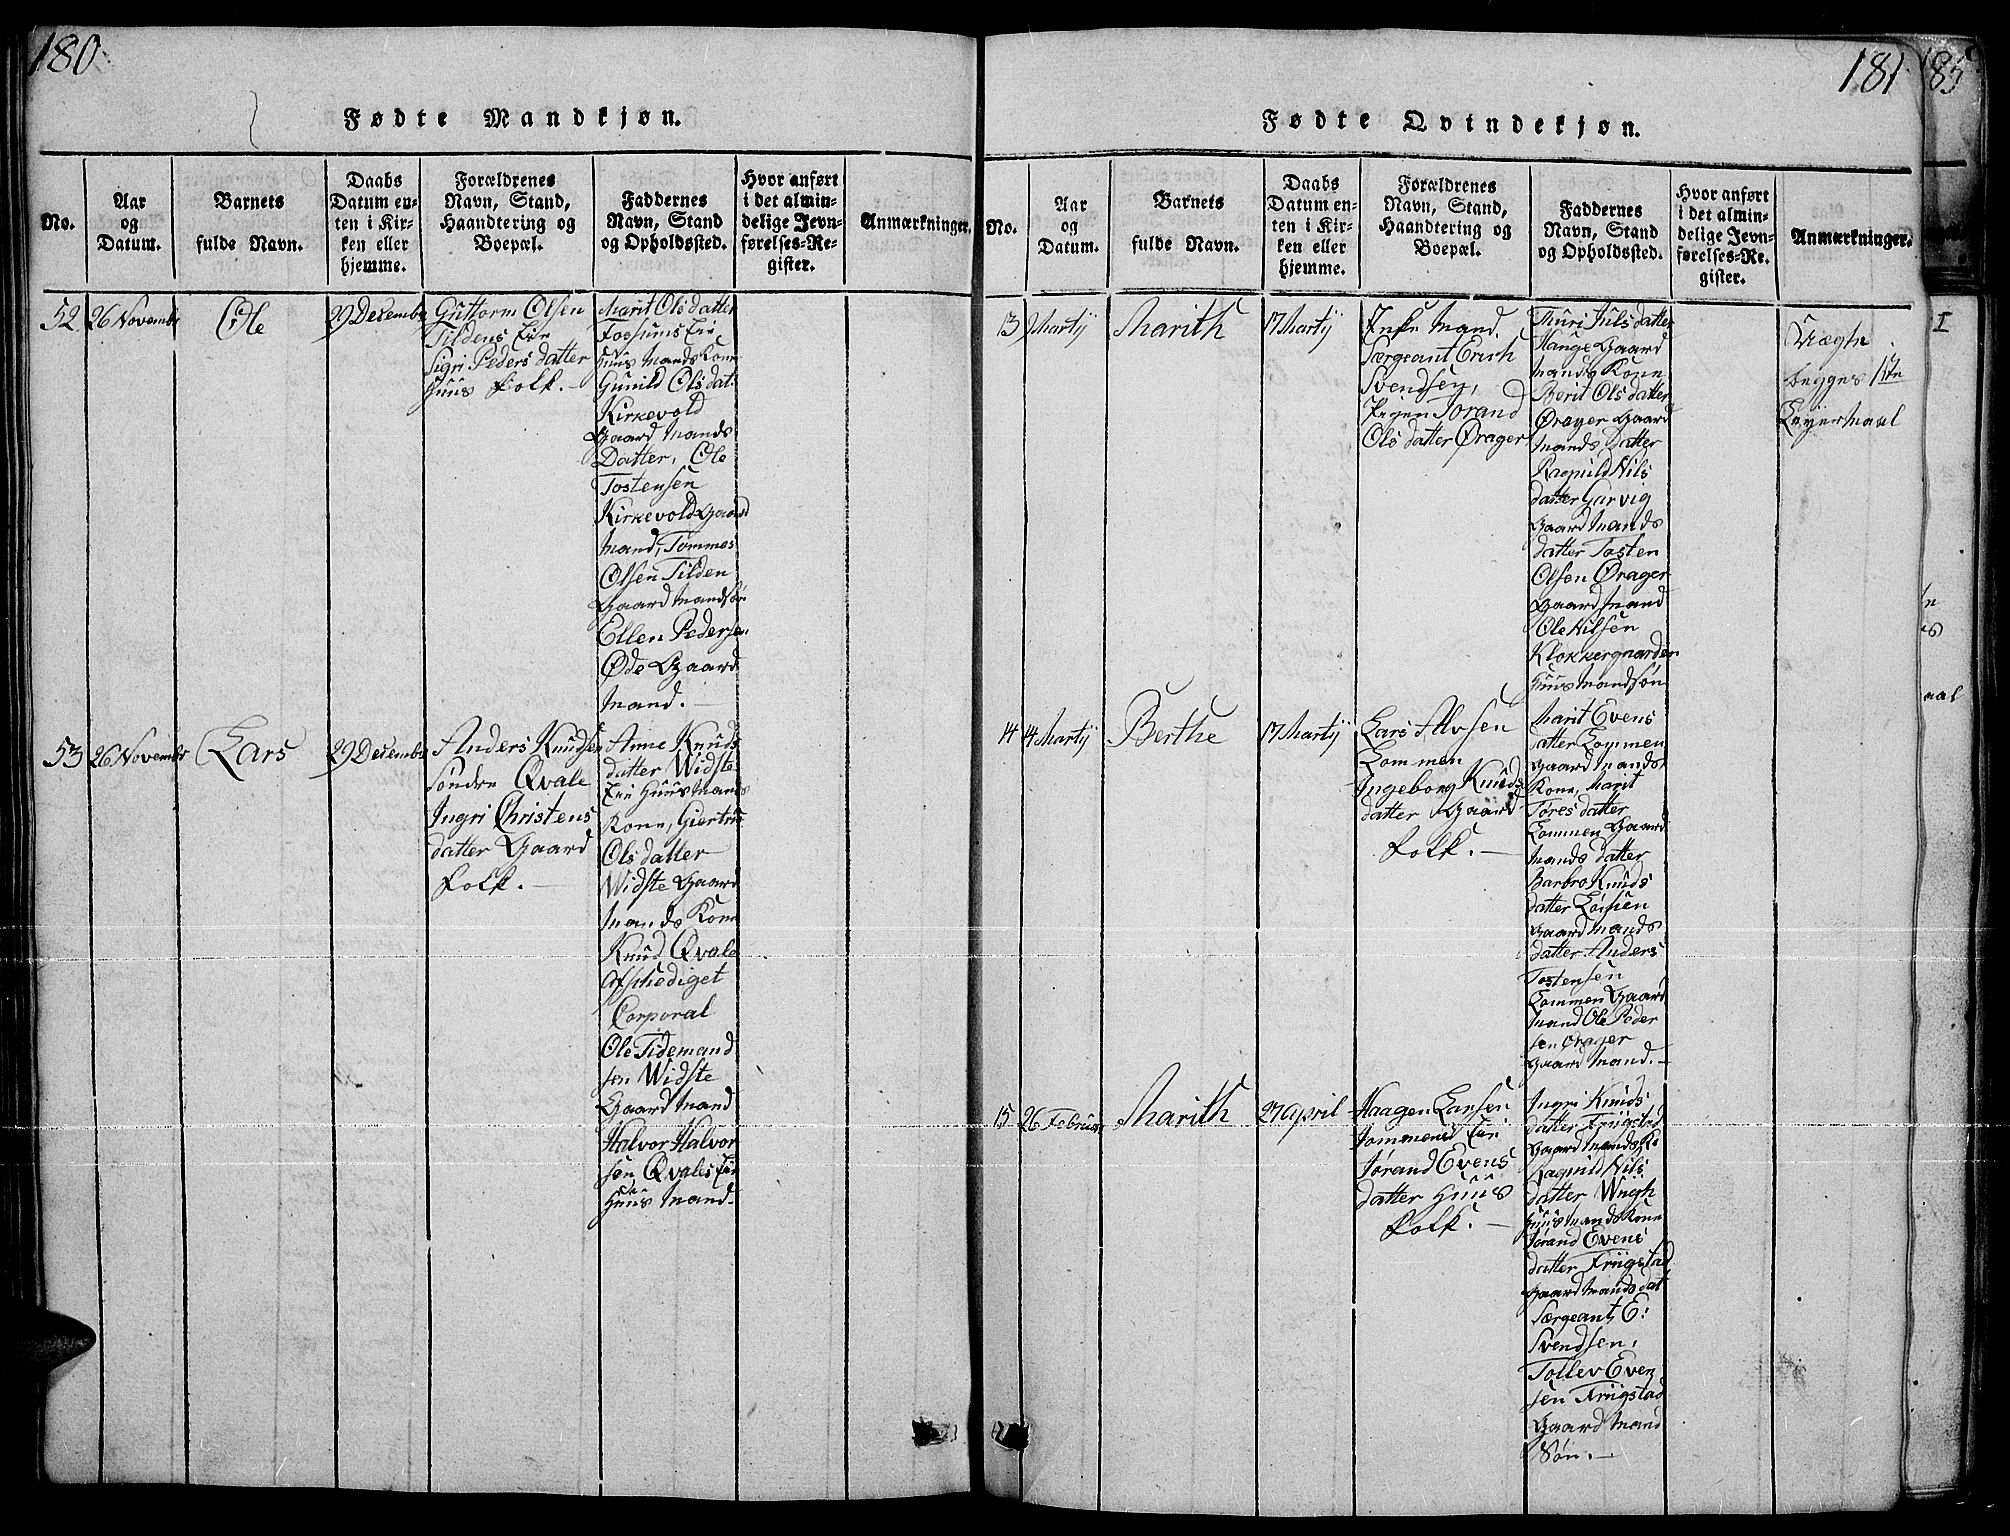 180
Fødte Mandkjøn.
No.
Aar
og
Datum.
Barnets
fulde Navn.
Daabs
Datum en-
ten i Kir-
ken eller
hjemme.
Forældrenes
Navn, Stand,
Haandtering og
Boepæl.
Faddernes
Navn, Stand
og Opholdssted.
Hvor anført
i det almin-
delige Jevn-
førelses-Re-
gister.
Anmærkninger.
52
26 Novembr
Ole
29 Decembr
Guttorm Olsen
Tildens Eie
Sigri Peders datter
Huus Folk. —
Marit Ols datter
Fossums Eie
Huus Mands Kone
Gunild Ols dat:
Kirkevold
Gaard Mands
Datter, Ole
Tostensen
Kirkevold Gaard
Mand, Tommes
Olsen Tilden
Gaard Mandsøn
Ellen Pedersen
Øde Gaard
Mand. —
53
26 Novembr
Lars
29 Decembr
Anders Knudsen
Søndre Qvale
Ingri Christens
datter Gaard
Folk. —
Anne Knuds
datter Widste
Eie Huus Mands
Kone, Giertru
Ols datter
Widste Gaard
Mands Kone
Knud Qvale
Afskediget
Corporal
Ole Tidemand
sen Widste
Gaard Mand
Halvor Halvor
sen Qvales Eie
Huus Mand-
181
Fødte Qvindekjøn.
No.
Aar
og
Datum.
Barnets
fulde Navn.
Daabs
Datum en-
ten i Kir-
ken eller
hjemme.
Forældrenes
Navn, Stand,
Haandtering og
Boepæl.
Faddernes
Navn, Stand
og Opholdssted.
Hvor anført
i det almin-
delige Jevn-
førelses-Re-
gister.
Anmærkninger.
13
Martij
Marith
17 Martij
Enke Mand
Særgeant Erich
Svendsen,
Pigen Jorand
Ols datter Ørager
Thuri Nils datter
Hauge Gaard
Mands Kone
Berit Ols datter
Ørager Gaard
Mands Datter
Ragnild Nils
datter Garvig
Gaard Mands
datter Tosten
Olsen Ørager
Gaard Mand
Ole Nilsen
Klokkergaarden
Huus Mandsøn
begges 1ste
Leyermaal
14
4 Martij
Berthe
17 Martij
Lars Alvsen
Lommen
Ingeborg Knuds
datter Gaard
Folk. —
Marit Evens
datter Lommen
Gaard Mands
Kone, Marit
Tøres datter
Lommen Gaard
Mands datter
Barbro Knuds
datter
Gaard Mands
datter Anders
Tostensen
Lommen Gaard
Mand Ole Peder
sen Ørager
Gaard Mand. —
15
26 Februar
Marith
27 April
Haagen Larsen
Lommens Eie
Jørand Evens
datter Huus
Folk. —
Ingri Knuds
datter Friigstad
Gaard Mands Ko
Ragnild Nils
datter
Huus Mands Kone
Jørand Evens
datter Friigstad
Gaard Mands dat
Særgeant E:
Svendsen,
Tollev Even
sen Friigstad
Gaard Mand
Søn. —
185
I